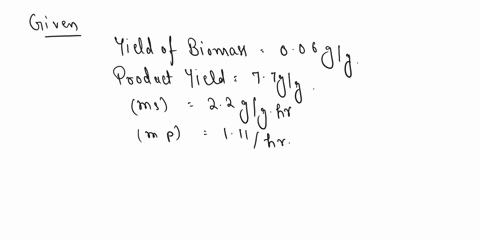 Given
Yield of Biomass = 0.06 g/g.
Product Yield = 7.7g/g.
(ms) = 2.2 g/g.hr
(mp) = 1.11/hr.